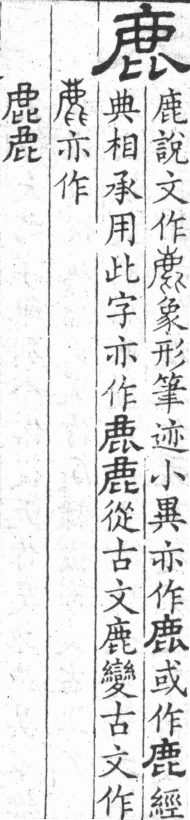 鹿
鹿說文作𢉖象形筆迹小異亦作鹿或作鹿經
典相承用此字亦作鹿鹿從古文鹿變古文作
亦作
鹿鹿